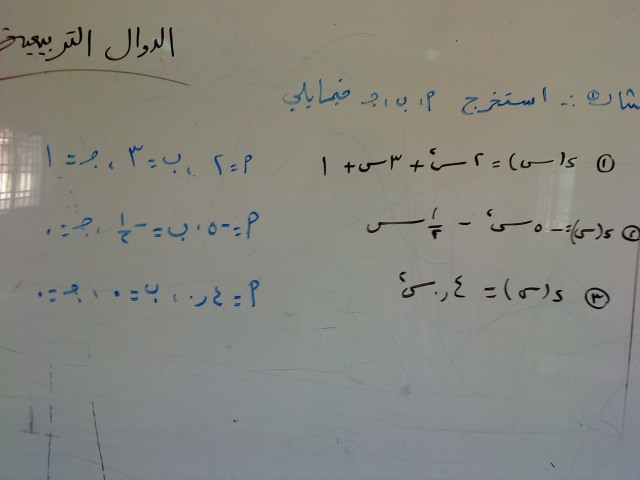 الدوال التربيعية
مثال ①:- استخرج م، ب، جـ فيما يلي
① د(س) = ٢س² + ٣س + ١ م = ٢، ب = ٣، جـ = ١
② د(س) = -٥س² - ١/٢ س م = -٥، ب = -١/٢، جـ = ٠
③ د(س) = ٤,٠س² م = ٤,٠، ب = ٠، جـ = ٠